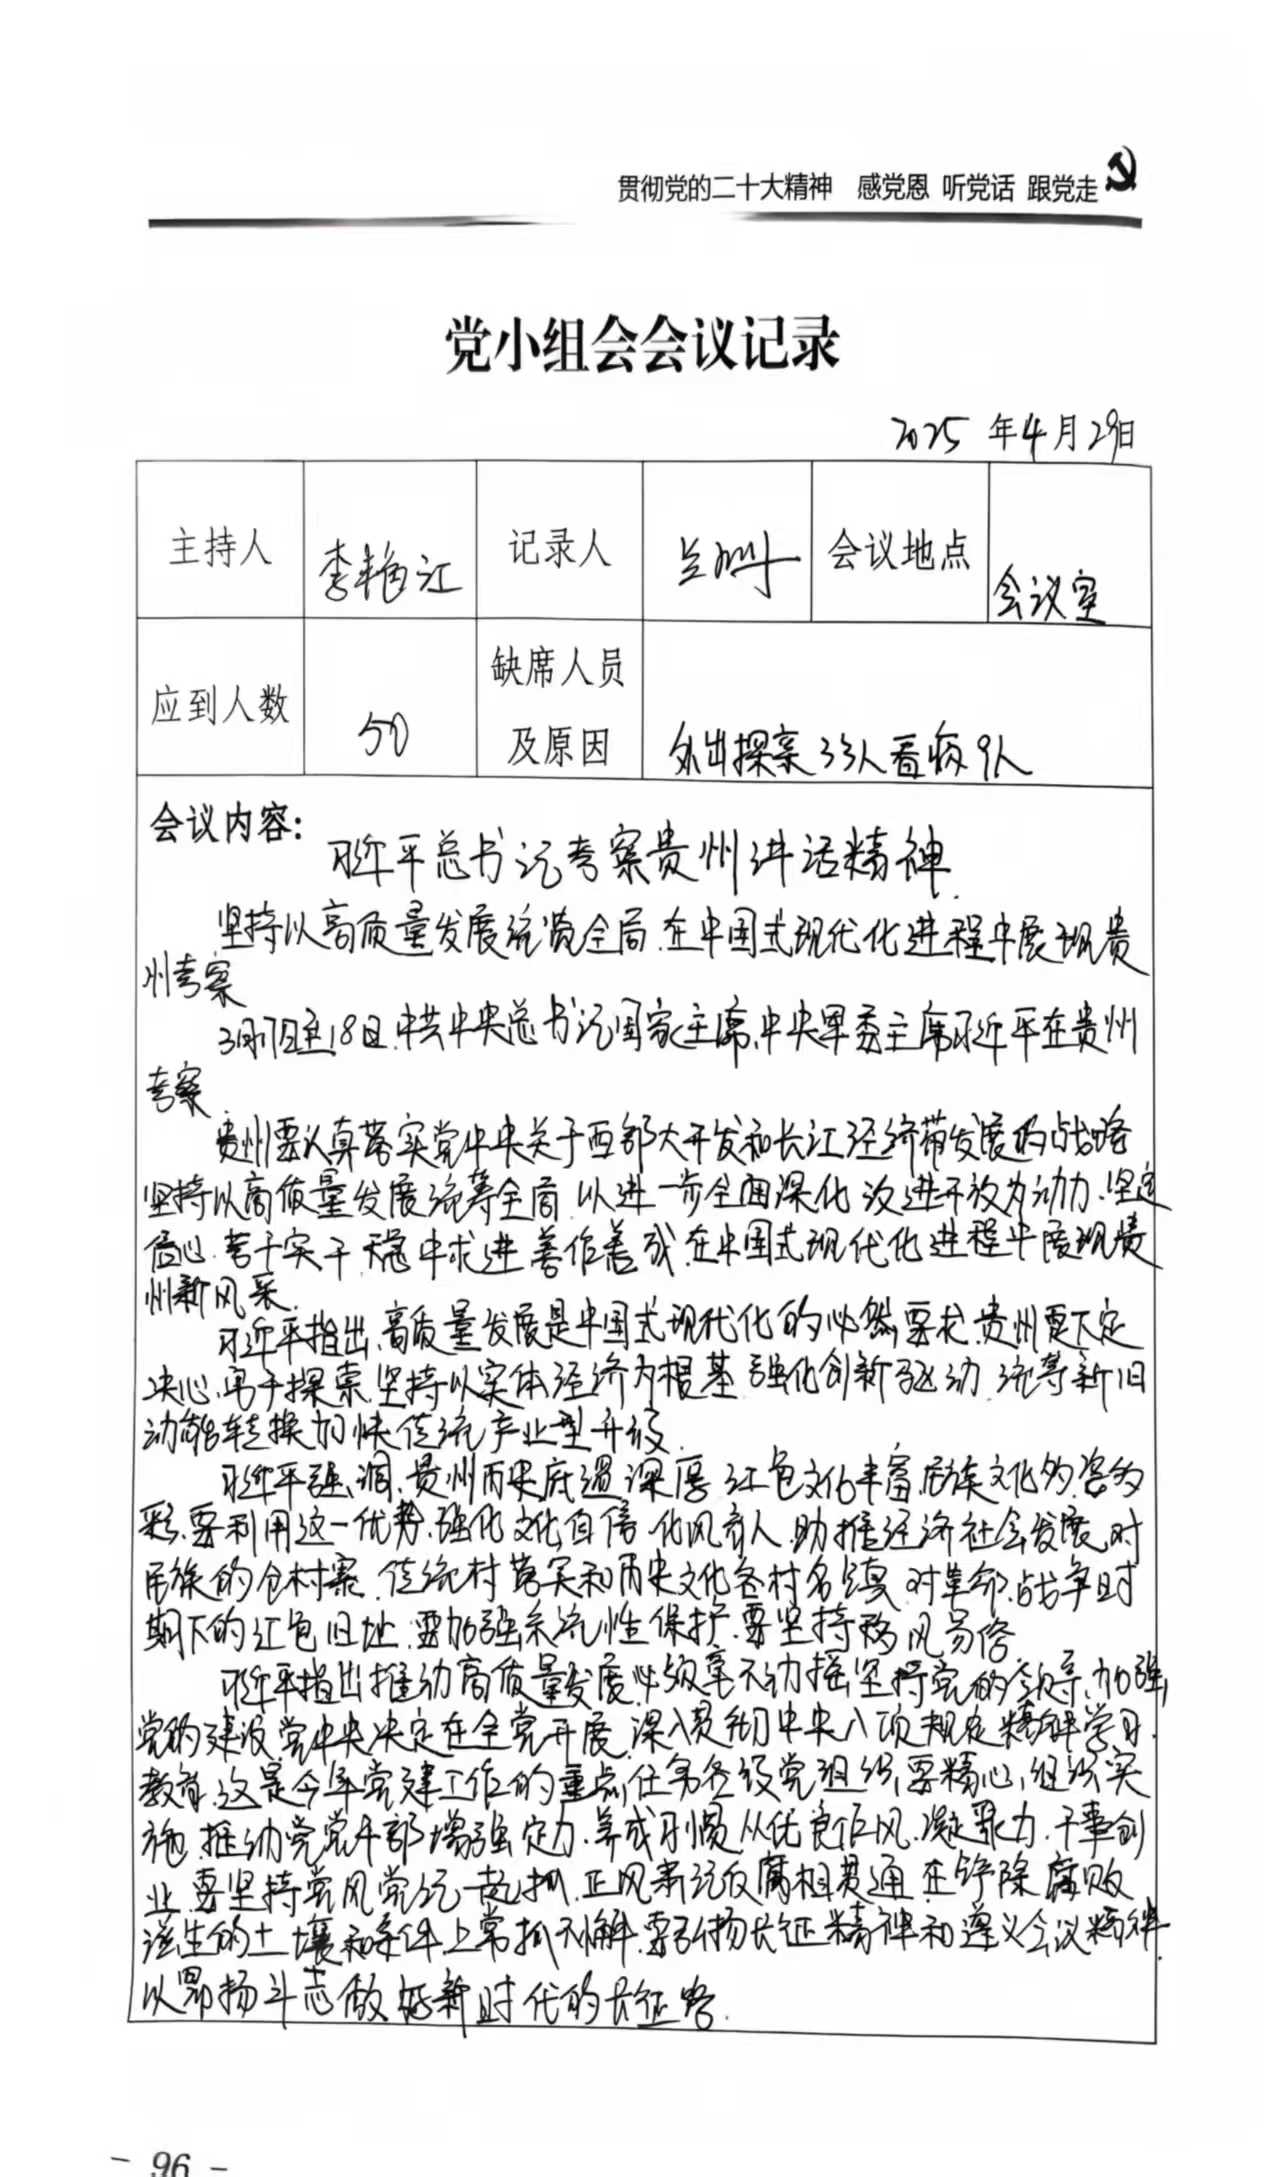 贯彻党的二十大精神 感党恩 听党话 跟党走
党小组会会议记录
2025 年 4 月 29 日
主持人 李艳江 记录人 会议地点 会议室
应到人数 50 缺席人员及原因 外出探亲33人看病9人
会议内容:
习近平总书记考察贵州讲话精神.
坚持以高质量发展统览全局.在中国式现代化进程中展现贵
州考察
3月17日至18日.中共中央总书记国家主席.中央军委主席习近平在贵州
考察.
贵州要认真落实党中央关于西部大开发和长江经济带发展的战略
坚持以高质量发展统筹全局.以进一步全面深化改进开放为动力.坚定
信心.苦干实干.稳中求进.善作善成.在中国式现代化进程中展现贵
州新风采.
习近平指出.高质量发展是中国式现代化的必然要求.贵州要下定
决心.勇于探索.坚持以实体经济为根基.强化创新驱动.统筹新旧
动能转换加快传统产业型升级.
习近平强调.贵州历史底蕴深厚.红色文化丰富.民族文化多姿多
彩.要利用这一优势.强化文化自信.化风育人.助推经济社会发展.对
民族的村寨.传统村落和历史文化名村名镇.对革命战争时
期下的红色旧址.要加强系统性保护.要坚持移风易俗.
习近平指出推动高质量发展必须毫不动摇坚持党的领导.加强
党的建设.党中央决定在全党开展.深入贯彻中央八项规定精神学习.
教育.这是今年党建工作的重点任务各级党组织.要精心.组织实
施.推动党党干部增强定力.养成习惯.从优良作风.凝聚力.干事创
业.要坚持党风党纪一起抓.正风肃纪反腐相贯通.在铲除腐败
滋生的土壤和条件上常抓不懈.要弘扬长征精神和遵义会议精神.
以昂扬斗志做好新时代的长征路.
- 96 -